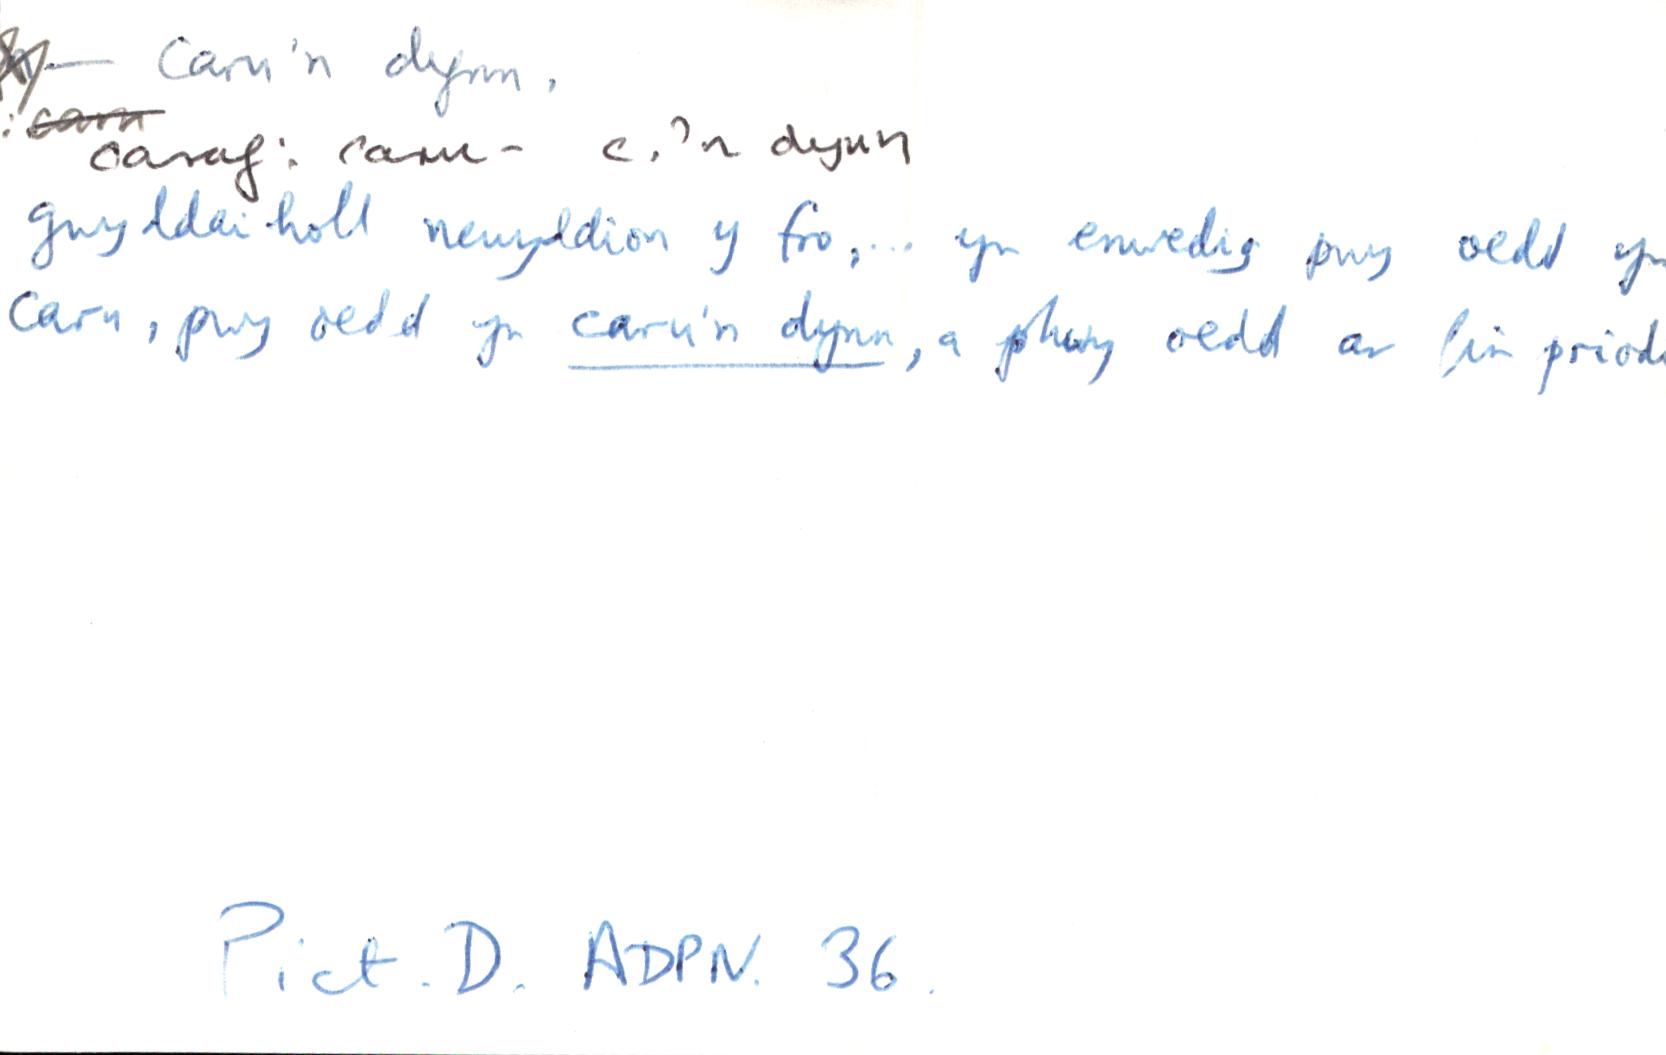 — Caru'n dynn,
: caru
caraf: caru - c.'n dynn
gwyddai holl newyddion y fro,... yn enwedig pwy oedd yn
Caru, pwy oedd yn caru'n dynn, a phwy oedd ar fin priod
Pict. D. ADPN. 36.